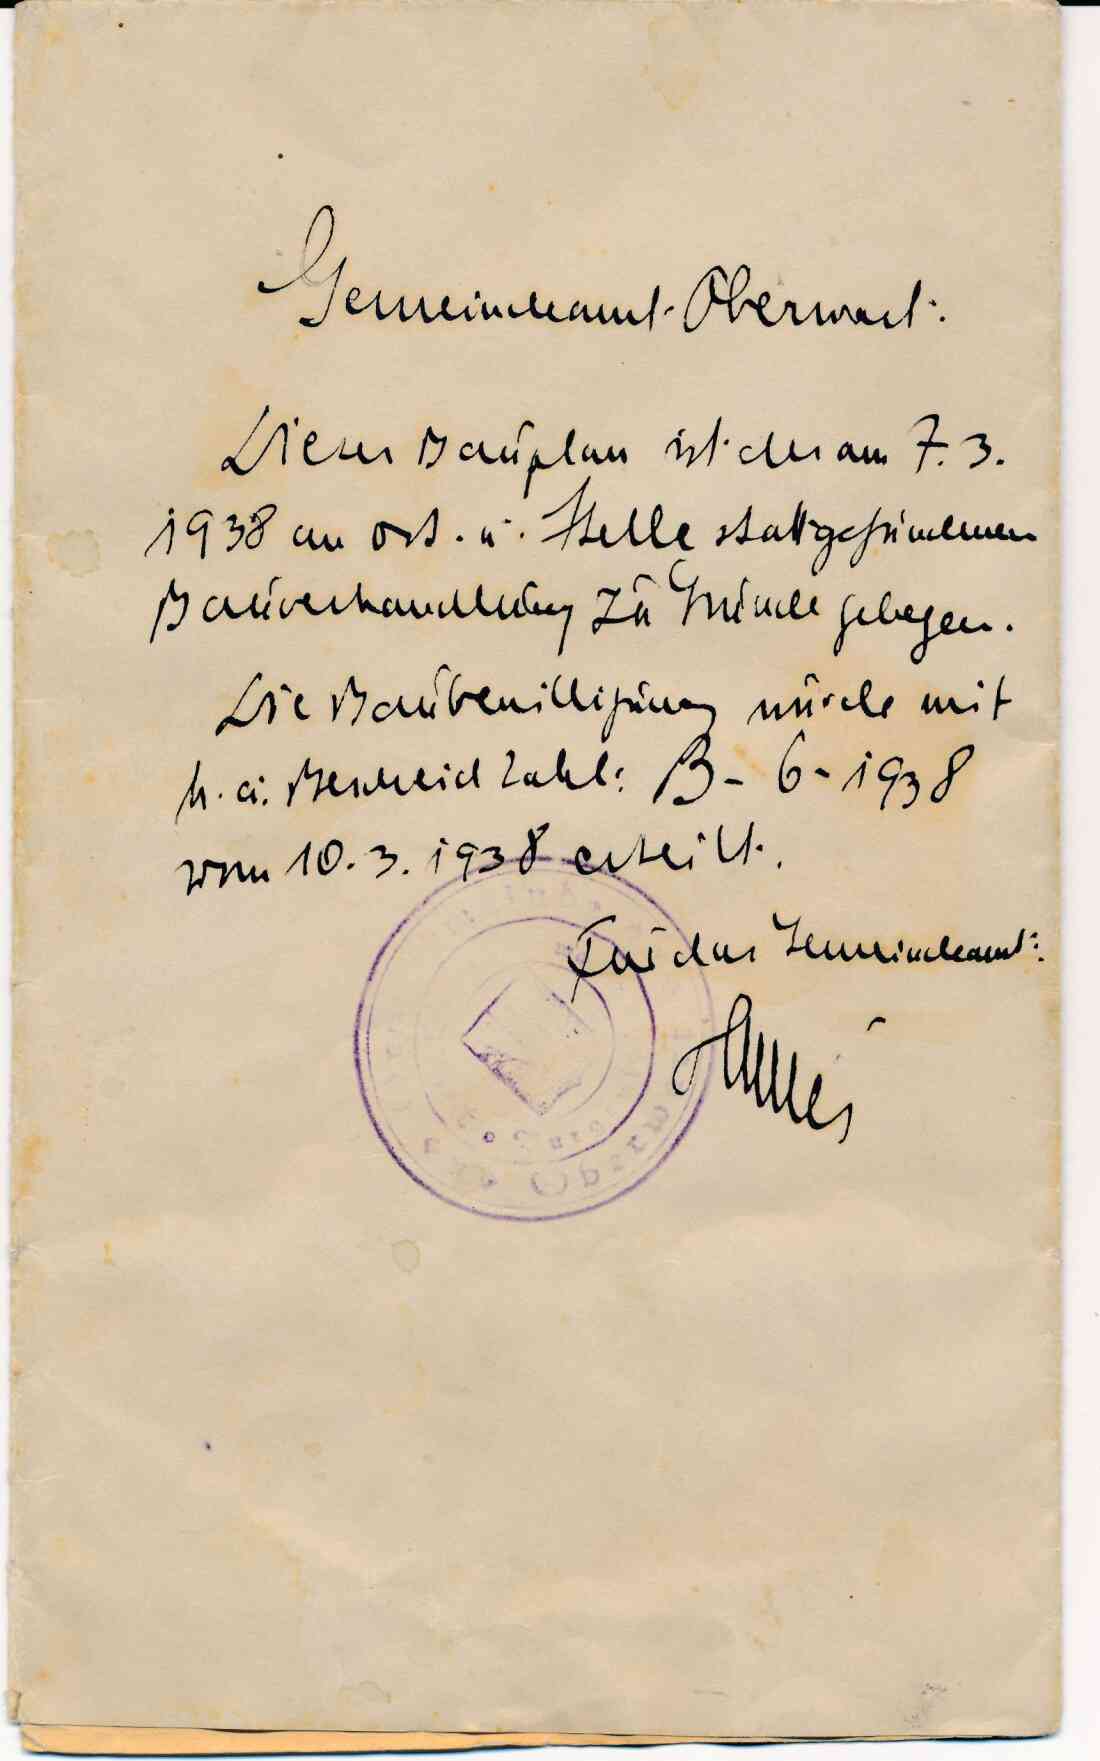 Gemeindeamt Oberwart:
Dieser Bauplan ist der am 7. 3.
1938 an Ort. u. Stelle stattgefundenen
Bauverhandlung zu Grunde gelegen.
Die Baubewilligung wurde mit
h. ä. Bescheid Zahl: B- 6- 1938
vom 10. 3. 1938 erteilt.
Für das Gemeindeamt: